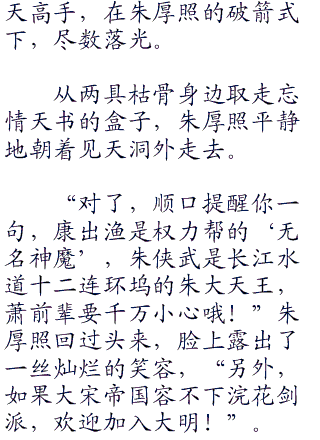 天高手，在朱厚照的破箭式
下，尽数落光。
从两具枯骨身边取走忘
情天书的盒子，朱厚照平静
地朝着见天洞外走去。
“对了，顺口提醒你一
句，康出渔是权力帮的‘无
名神魔’，朱侠武是长江水
道十二连环坞的朱大天王，
萧前辈要千万小心哦！”朱
厚照回过头来，脸上露出了
一丝灿烂的笑容，“另外，
如果大宋帝国容不下浣花剑
派，欢迎加入大明！”。